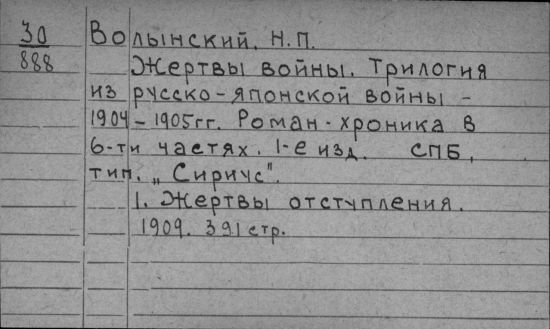 30
888
Волынский, Н.П.
Жертвы войны. Трилогия
из русско-японской войны -
1904-1905гг. Роман-хроника в
6-ти частях. 1-е изд. СПБ,
тип. „Сириус".
1. Жертвы отступления.
1909. 391 стр.